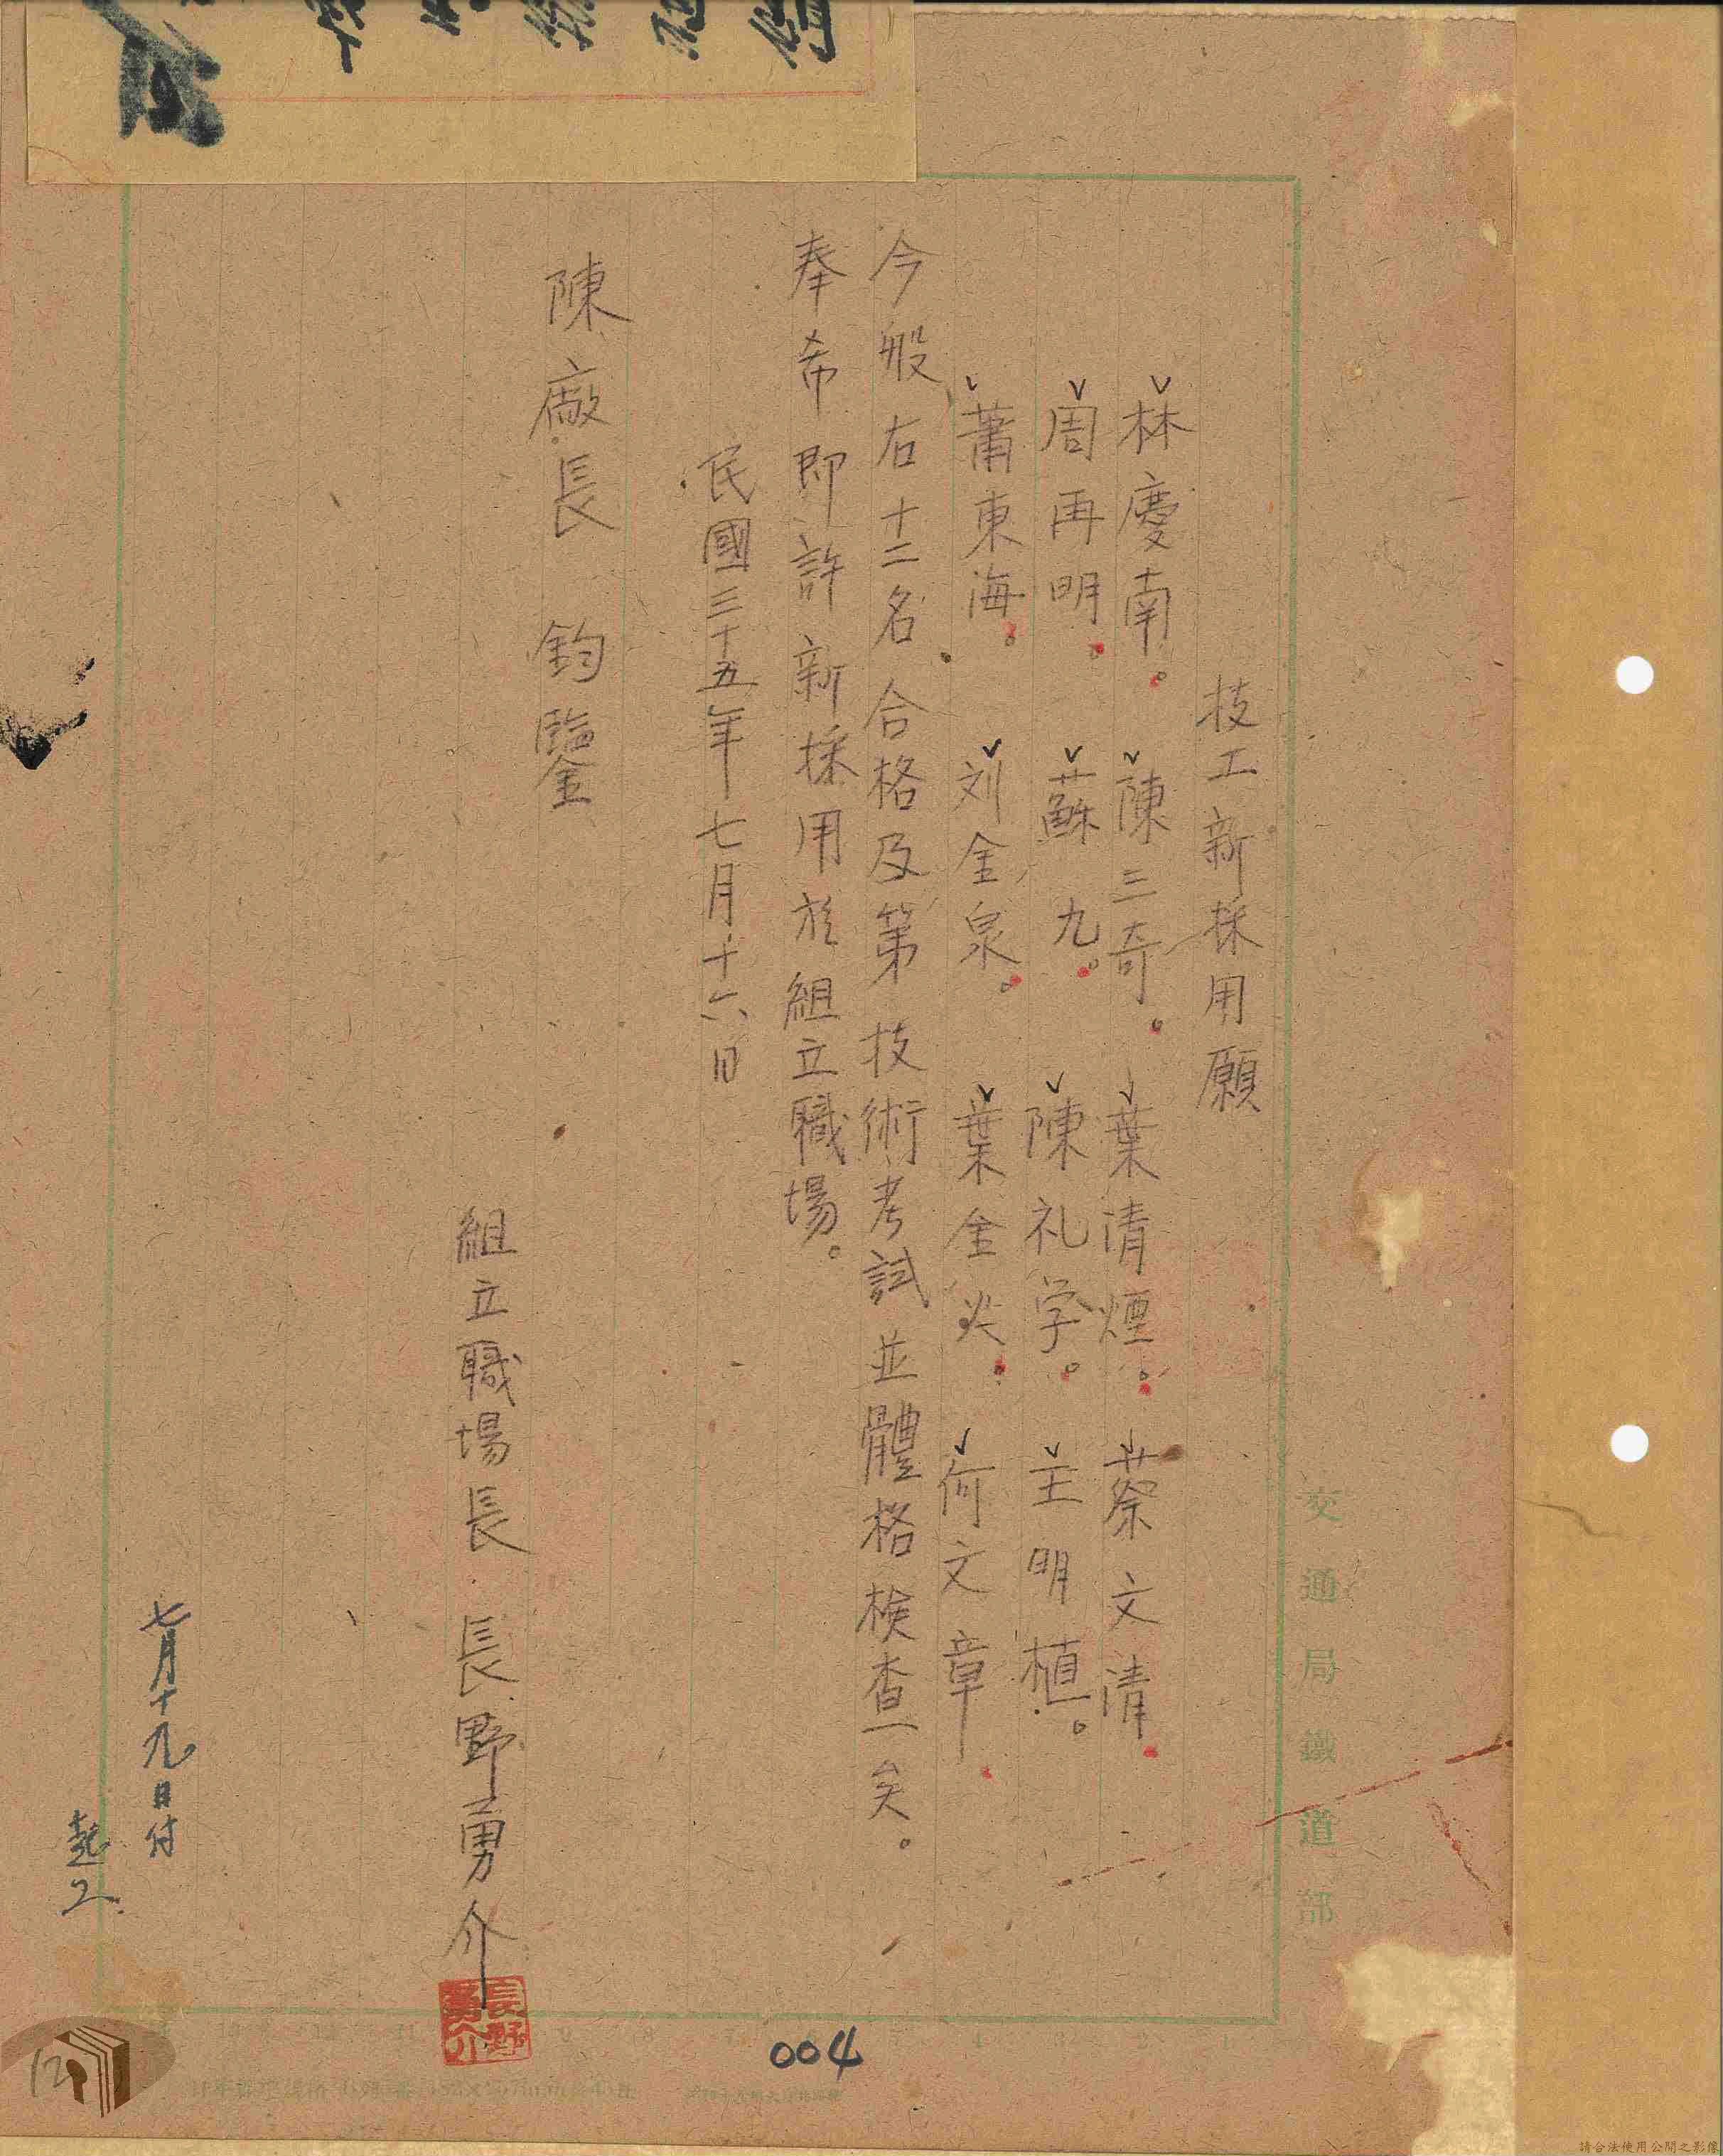 交通局鐵道部
技工新採用願
林慶南。 陳三奇。 葉清煙。 蔡文清
周再明。 蘇九。 陳礼学。 王明植。
蕭東海。 刘金泉。 葉金火。 何文章
今般右十二名合格及第技術考試並體格検查矣。
奉希即許新採用於組立職場。
民國三十五年七月十六日
陳廠長 鈞鑒
組立職場長 長野勇介
長野
勇介
七月十九日付
起工
004
12
請合法使用公開之影像